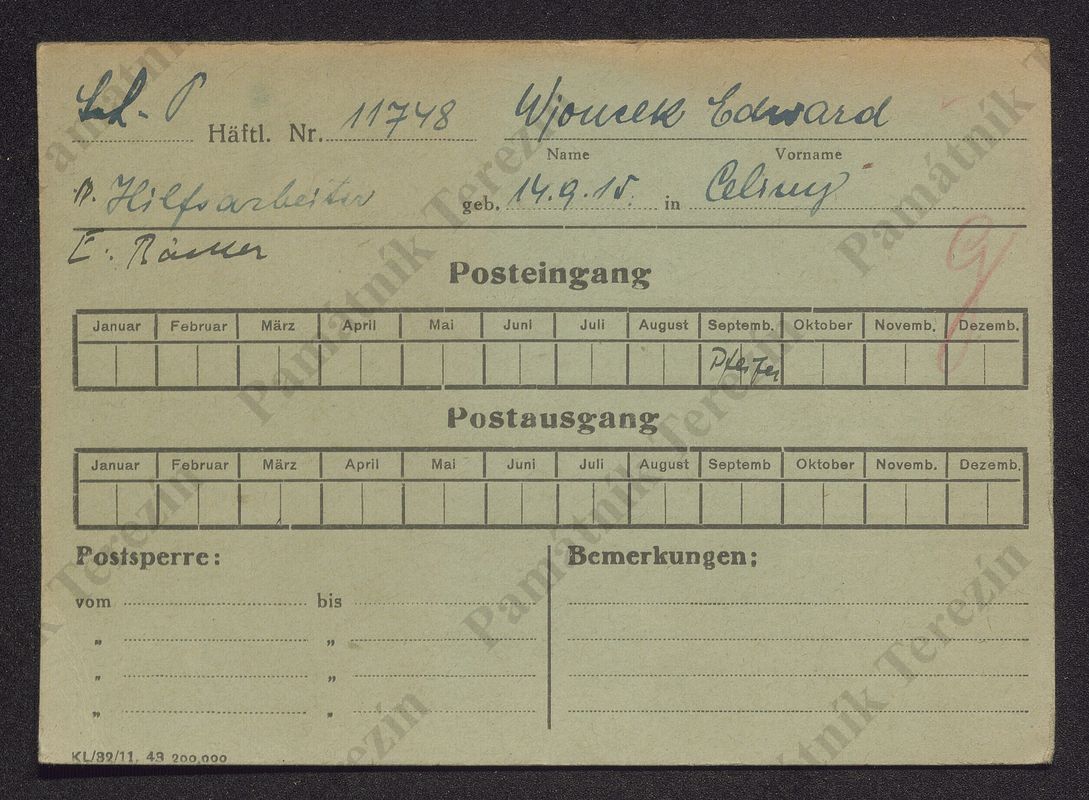 Sch. P Häftl. Nr. 11748 Wjoncek Edward
Name Vorname
B. Hilfsarbeiter geb. 14.9.15. in Celiny
E.
Posteingang
Januar Februar März April Mai Juni Juli August Septemb. Oktober Novemb. Dezemb.
Pfeifer
Postausgang
Januar Februar März April Mai Juni Juli August Septemb Oktober Novemb. Dezemb.
Postsperre: Bemerkungen:
vom bis
„ „
„ „
„ „
KL/39/11. 43 200,000
Památník Terezín